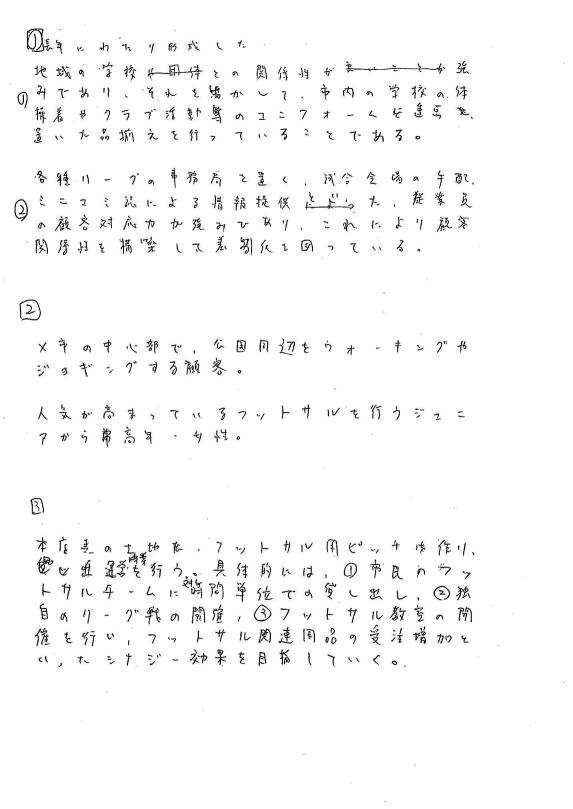 1 長年にわたり形成した
地域の学校や団体との関係性が 強
① みであり、それを活かして、市内の学校の体
操着やクラブ活動等のユニフォーム を
置いた品揃えを行っていることである。
各種リーグの事務局を置く、試合会場の手配、
② ミニコミ誌による情報提供といった、従業員
の顧客対応力が強みであり、これにより顧客
関係性を構築して差別化を図っている。
2
X市の中心部で、公園周辺をウォーキングや
ジョギングする顧客。
人気が高まっているフットサルを行うジュニ
アから中高年・女性。
3
本店 の土地を、フットサル用ピッチを作り、
を行う。具体的には、①市民のフッ
トサルチームに対する時間単位での貸し出し、②独
自のリーグ戦の開催、③フットサル教室の開
催を行い、フットサル関連用品の受注増加と
いったシナジー効果を目指していく。